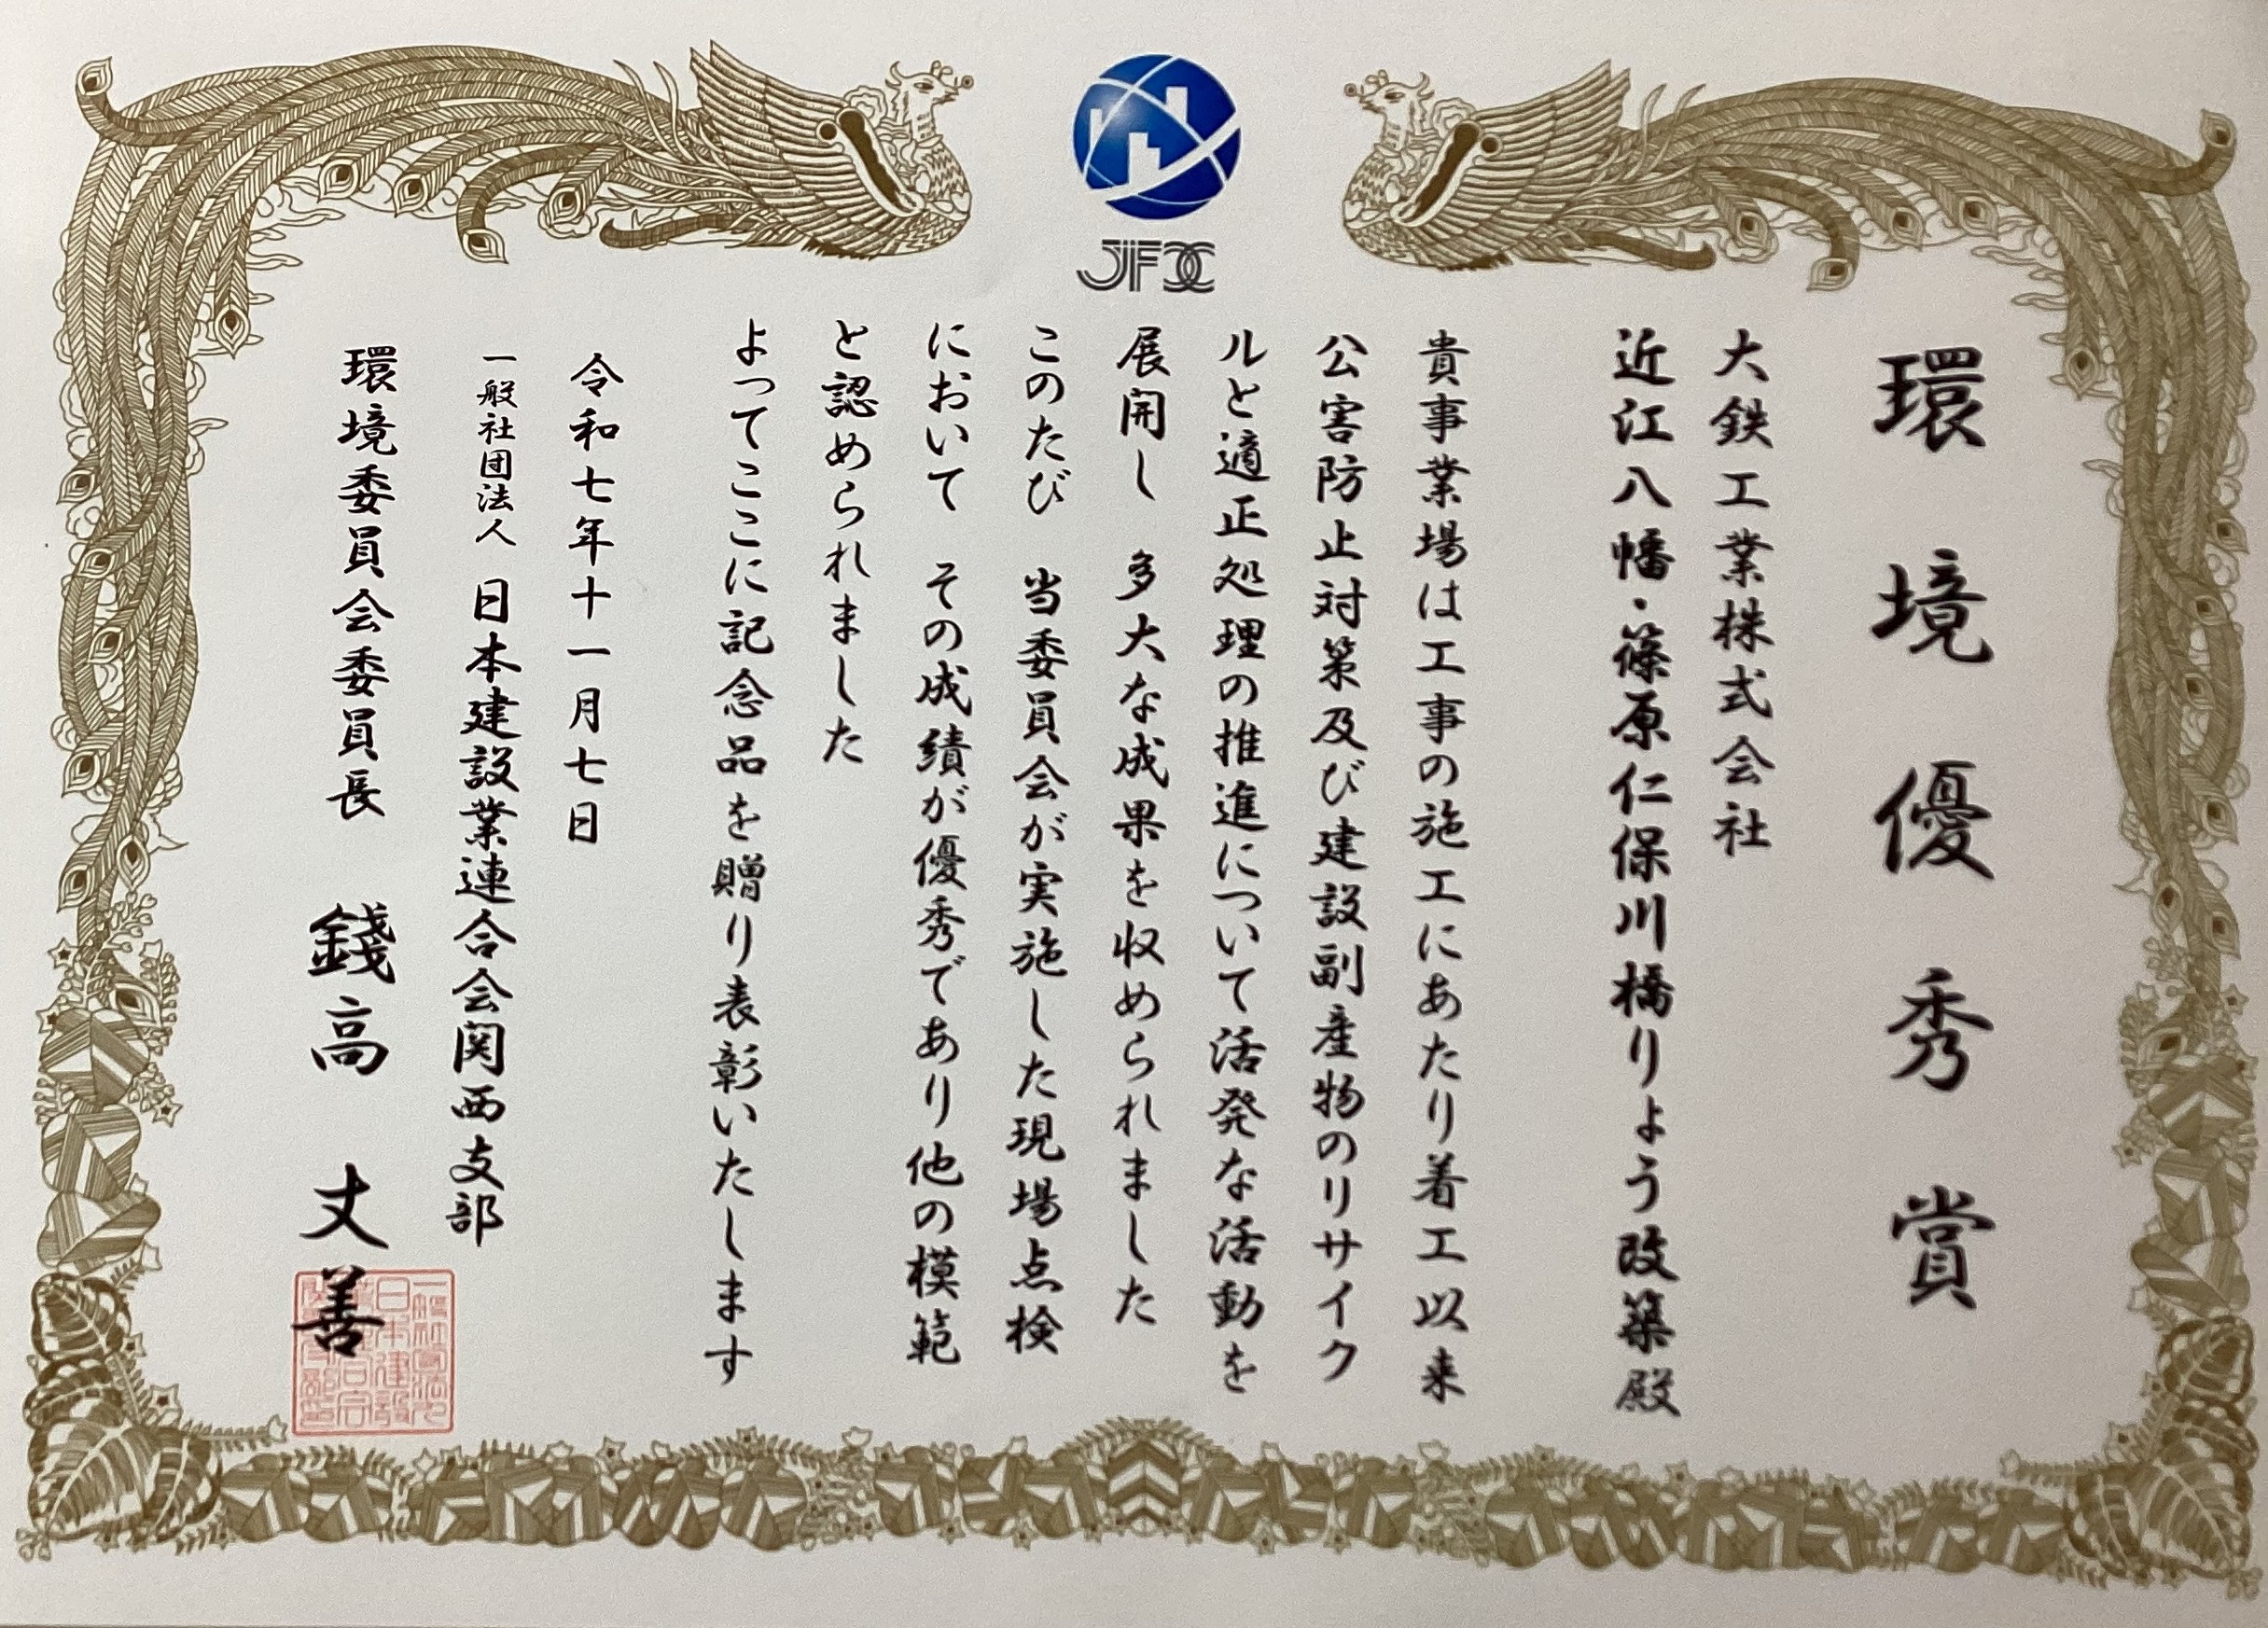 JFCC
環境優秀賞
大鉄工業株式会社
近江八幡・篠原仁保川橋りょう改築殿
貴事業場は工事の施工にあたり着工以来
公害防止対策及び建設副産物のリサイク
ルと適正処理の推進について活発な活動を
展開し 多大な成果を収められました
このたび 当委員会が実施した現場点検
において その成績が優秀であり他の模範
と認められました
よってここに記念品を贈り表彰いたします
令和七年十一月七日
一般社団法人 日本建設業連合会関西支部
環境委員会委員長 錢高 丈善